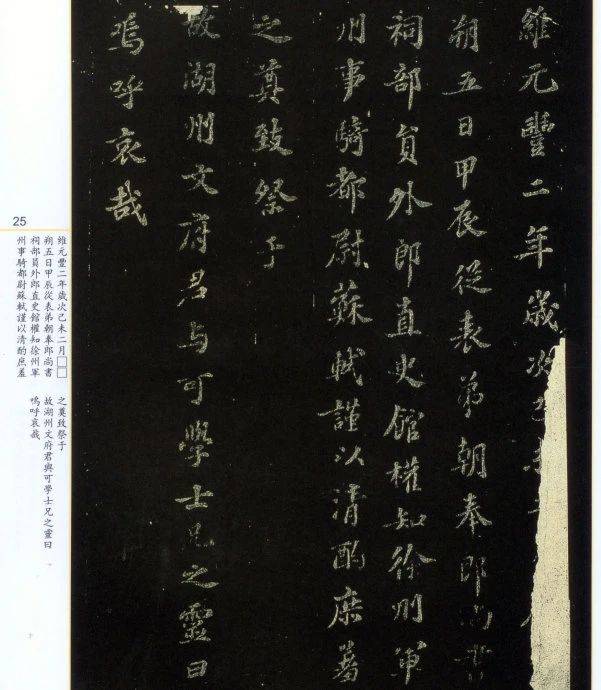 維元豐二年歲次
朔五日甲辰從表弟朝奉郎尚書
祠部員外郎直史館權知徐州軍
州事騎都尉蘇軾謹以清酌庶羞
之奠致祭于
故湖州文府君与可學士兄之靈曰
嗚呼哀哉
25
維元豐二年歲次己未二月□□
朔五日甲辰從表弟朝奉郎尚書
祠部員外郎直史館權知徐州軍
州事騎都尉蘇軾謹以清酌庶羞
之奠致祭于
故湖州文府君與可學士兄之靈曰
嗚呼哀哉